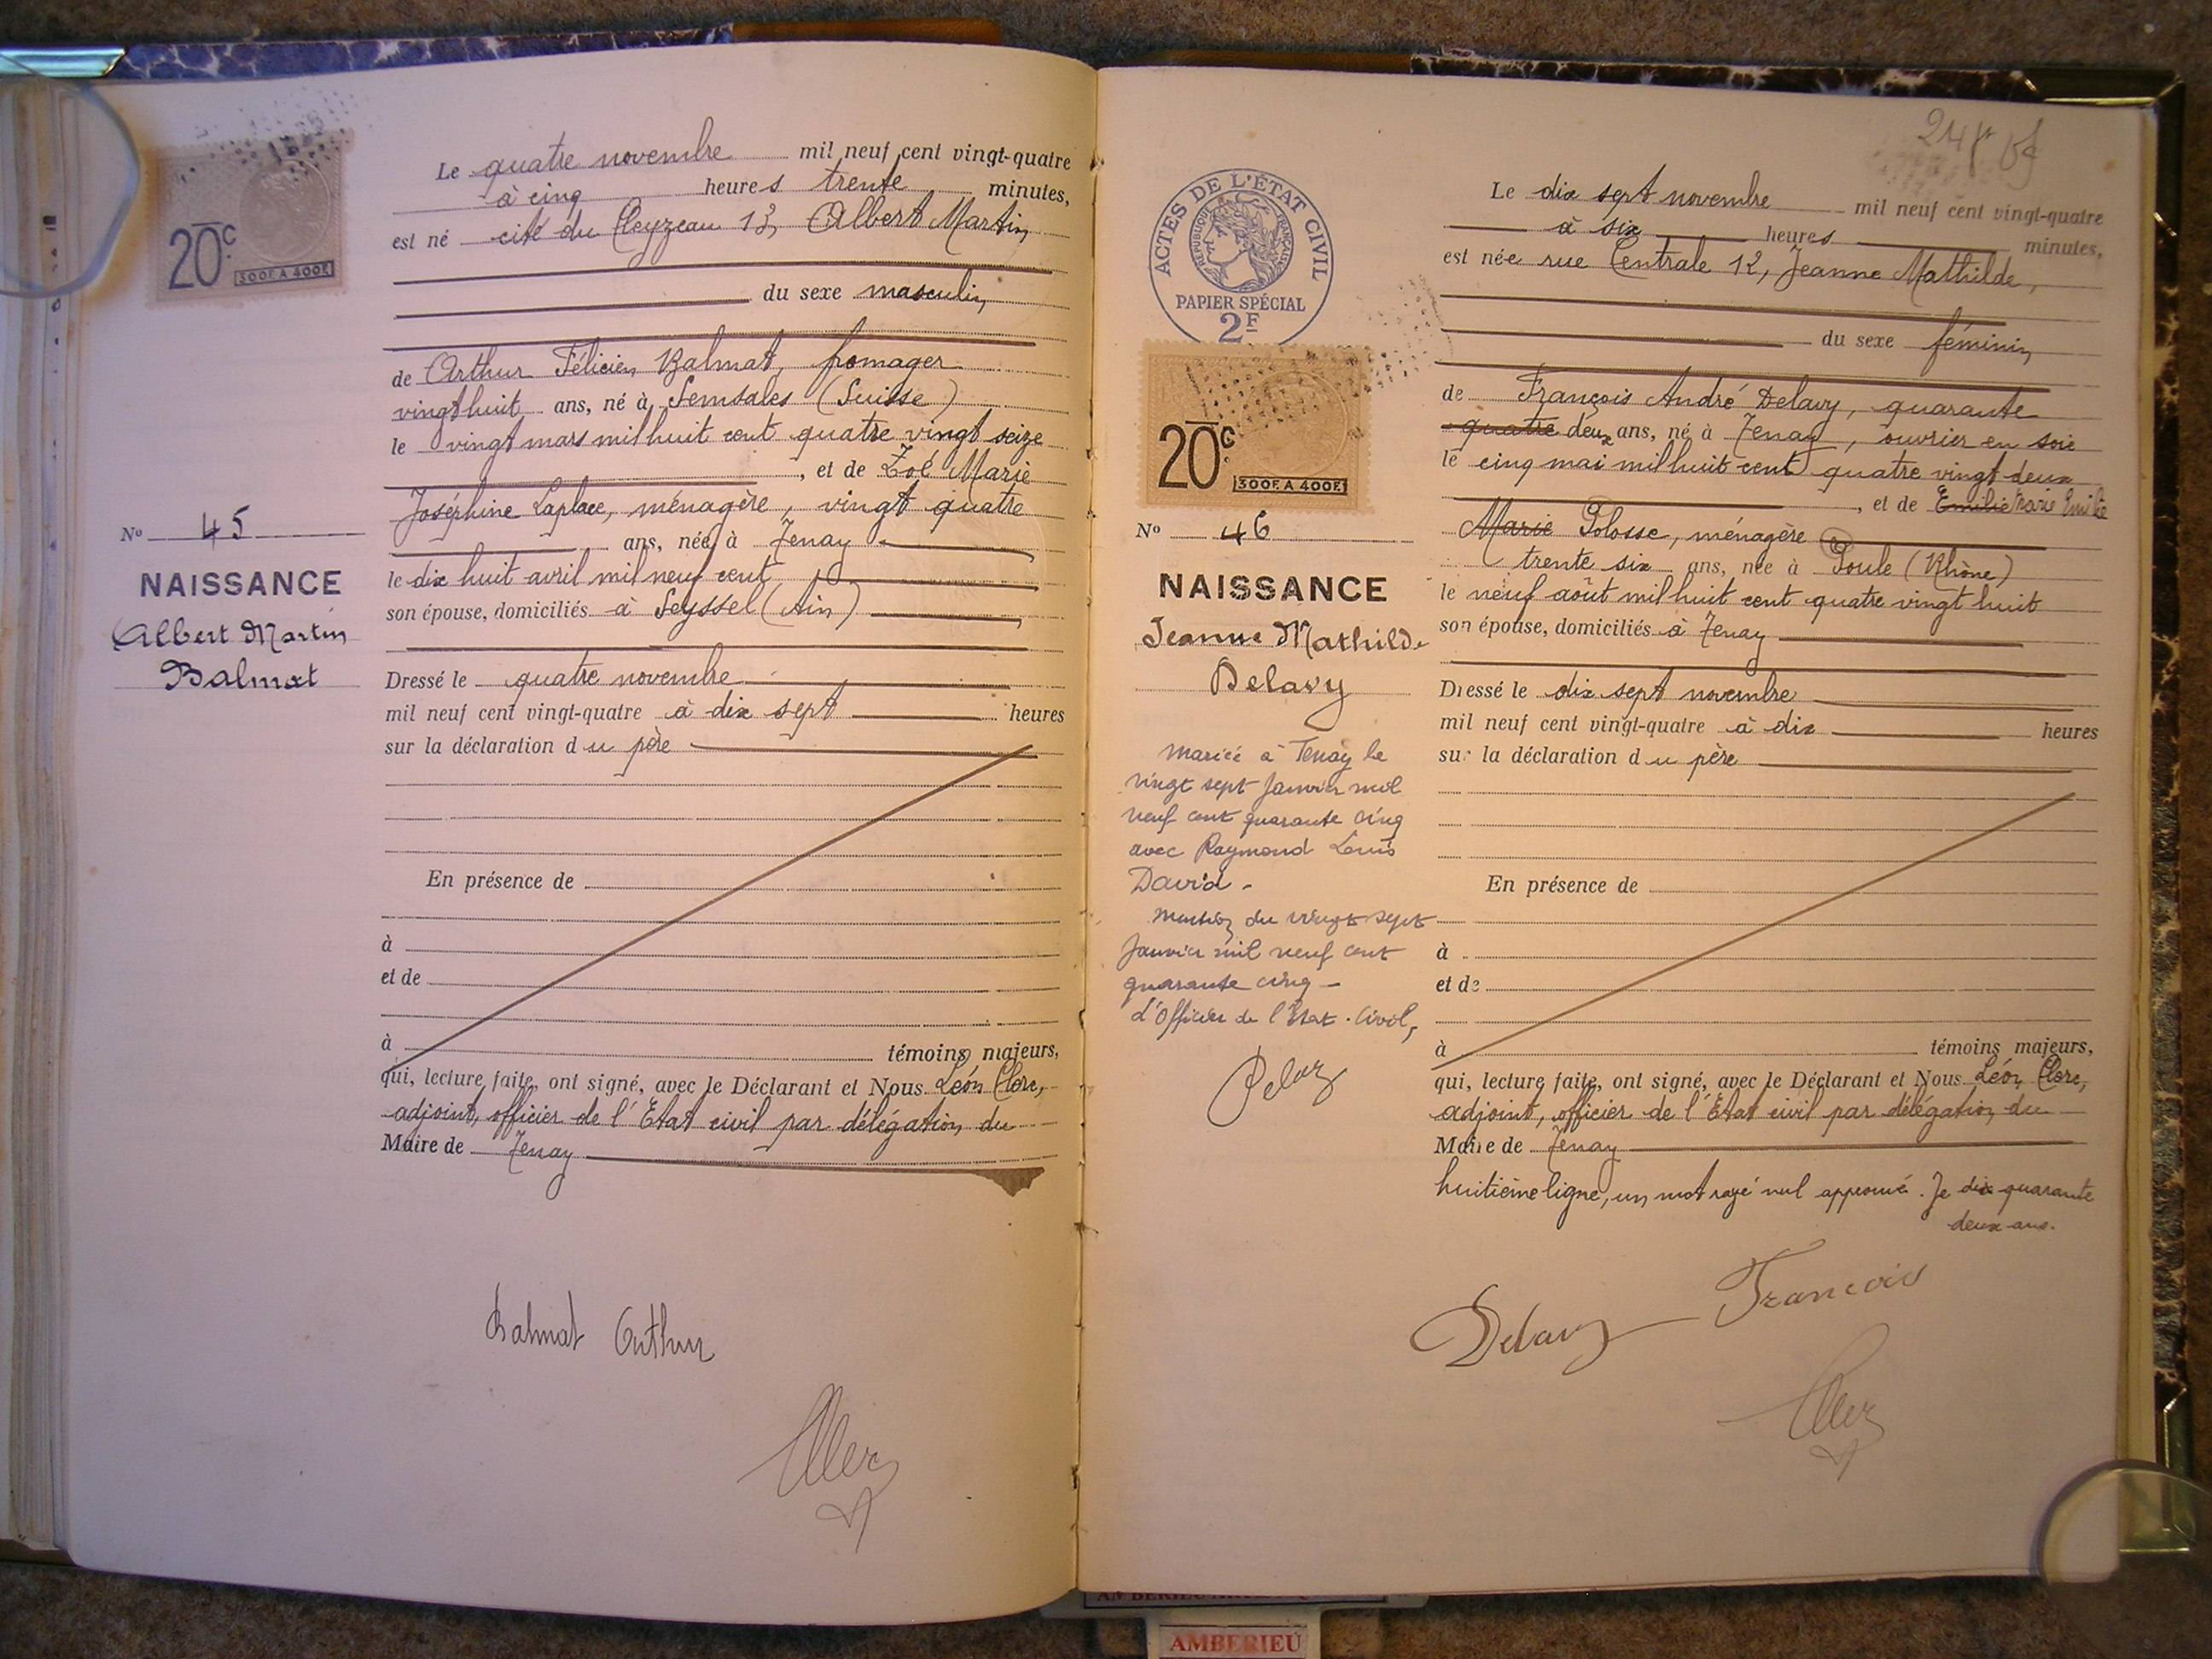 20c.
300F. A 400F.
Le quatre novembre mil neuf cent vingt-quatre
à cinq heures trente minutes,
est né cité du Cleyzeau 13, Albert Martin
du sexe masculin
de Arthur Félicien Balmat, fromager
vingt huit ans, né à Semsales (Suisse)
le vingt mars mil huit cent quatre vingt seize
, et de Zoé Marie
Joséphine Laplace, ménagère, vingt quatre
ans, née à Tenay
le dix huit avril mil neuf cent
son épouse, domiciliés à Seyssel (Ain)
No 45
NAISSANCE
Albert Martin
Balmat
Dressé le quatre novembre
mil neuf cent vingt-quatre à dix sept heures
sur la déclaration du père
En présence de
à
et de
à témoins majeurs,
qui, lecture faite, ont signé, avec le Déclarant et Nous Léon Clerc,
adjoint, officier de l'Etat civil par délégation du
Maire de Tenay
Balmat Arthur
24
ACTES DE L'ÉTAT CIVIL
RÉPUBLIQUE FRANÇAISE
PAPIER SPÉCIAL
2F
20c.
300F. A 400F.
Le dix sept novembre mil neuf cent vingt-quatre
à six heures minutes,
est née rue Centrale 12, Jeanne Mathilde,
du sexe féminin
de François André Delavy, quarante
quatre deux ans, né à Tenay, ouvrier en soie
le cinq mai mil huit cent quatre vingt deux
, et de Emilie Marie Emilie
Marie Polosse, ménagère
trente six ans, née à Poule (Rhône)
le neuf août mil huit cent quatre vingt huit
son épouse, domiciliés à Tenay
No 46
NAISSANCE
Jeanne Mathilde
Delavy
mariée à Tenay le
vingt sept Janvier mil
neuf cent quarante cinq
avec Raymond Louis
David -
mention du vingt sept
Janvier mil neuf cent
quarante cinq -
d'Officier de l'Etat-Civil,
Pelaz
Dressé le dix sept novembre
mil neuf cent vingt-quatre à dix heures
sur la déclaration du père
En présence de
à
et de
à témoins majeurs,
qui, lecture faite, ont signé, avec le Déclarant et Nous Léon Clerc,
adjoint, officier de l'Etat civil par délégation du
Maire de Tenay
huitième ligne, un mot rayé nul approuvé. Je dis quarante
deux ans.
Delavy François
AMBERIEU